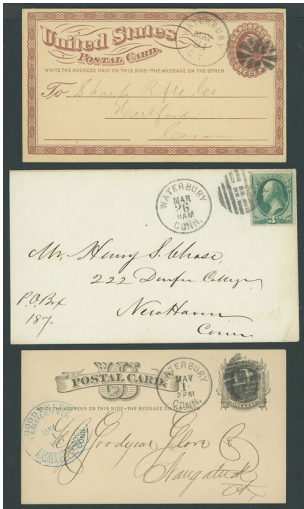 United States
POSTAL CARD.
WRITE THE ADDRESS ONLY ON THIS SIDE - THE MESSAGE ON THE OTHER
WATERBURY
CT.
To Sharps Rifle Co
Conn
WATERBURY
MAR
26
11AM
CONN.
Mr. Henry S. Chase.
222 Durfee College
P.O. Box
187.
New Haven
Conn
US
POSTAL CARD.
WRITE THE ADDRESS ON THIS SIDE - THE MESSAGE ON THE OTHER
WATERBURY
MAY
1
2PM
CONN.
Goodyear Glove
Naugatuck
Ct